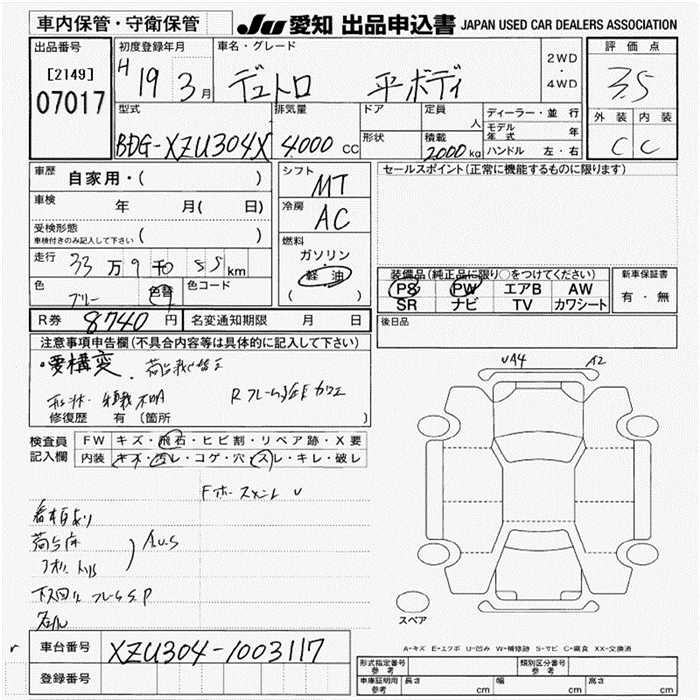 車内保管・守衛保管
JU 愛知 出品申込書 JAPAN USED CAR DEALERS ASSOCIATION
出品番号
[2149]
07017
初度登録年月
H 19 3月
車名・グレード
デュトロ 平ボディ
2WD
・
4WD
評価点
3.5
外装 内装
C C
型式
BDG-XZU304X
排気量
4.000 CC
ドア
形状
定員
人
積載
2000 kg
ディーラー・並行
モデル年式 年
ハンドル 左・右
車歴
自家用・( )
車検
年 月( 日)
受検形態
車検付きのみ記入して下さい ( )
走行
33万9千055km
色
ブルー
色替
色コード
シフト
MT
冷房
AC
燃料
ガソリン
・
軽油
( )
セールスポイント(正常に機能するものに限ります)
装備品(純正品に限り○をつけてください)
PS PW エアB AW
SR ナビ TV カワシート
新車保証書
有・無
R券 8740円
名変通知期限 月 日
後日品
注意事項申告欄(不具合内容等は具体的に記入して下さい)
・要構変
修復歴 有 (箇所 )
検査員
記入欄
FW キズ・飛石・ヒビ割・リペア跡・X要
内装 キズ・汚レ・コゲ・穴・スレ・キレ・破レ
UA4 A2
スペア
A=キズ E=エクボ U=凹み W=補修跡 S=サビ C=腐食 XX=交換済
車台番号 XZU304-1003117
登録番号
形式指定番号
参考
類別区分番号
参考
車庫証明用
参考
長さ cm 幅 cm 高さ cm